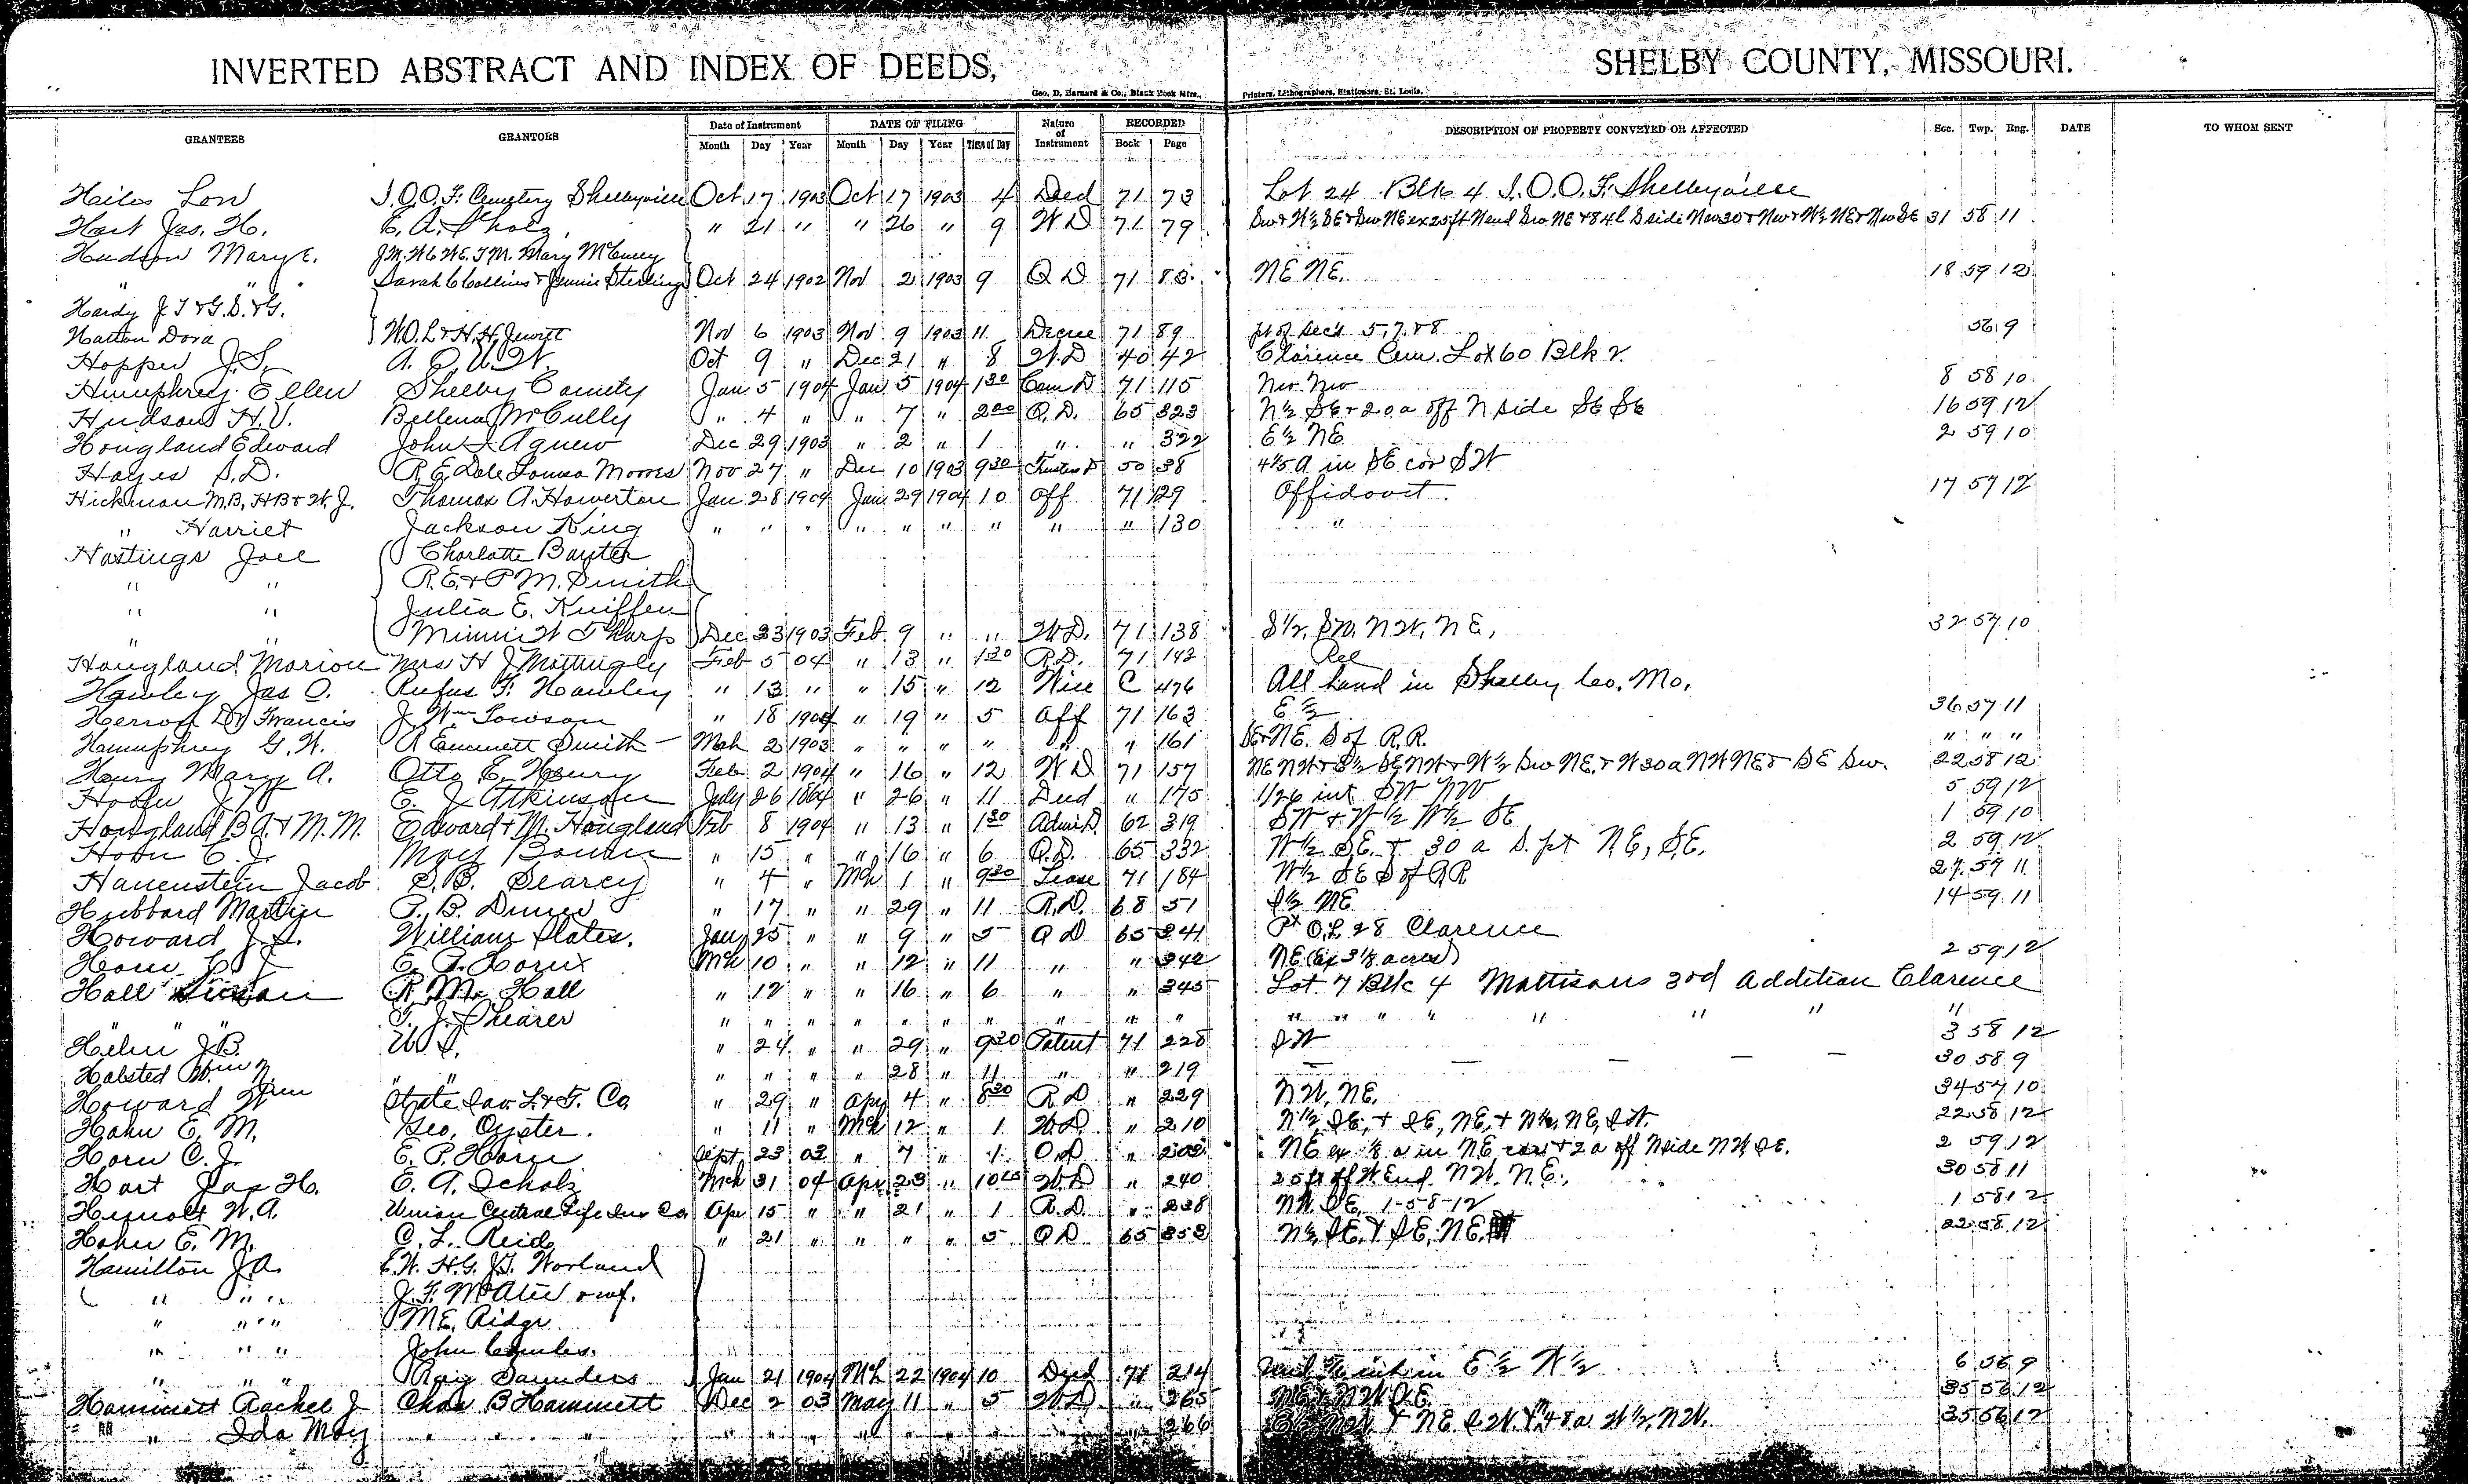 INVERTED ABSTRACT AND INDEX OF DEEDS, SHELBY COUNTY, MISSOURI.
Geo. D. Barnard & Co., Blank Book Mfrs., Printers, Lithographers, Stationers, St. Louis.
GRANTEES GRANTORS Date of Instrument DATE OF FILING Nature of Instrument RECORDED DESCRIPTION OF PROPERTY CONVEYED OR AFFECTED Sec. Twp. Rng. DATE TO WHOM SENT
Month Day Year Month Day Year Time of Day Book Page
Hiles Lon I.O.O.F. Cemetery Shelbyville Oct 17 1903 Oct 17 1903 4 Deed 71 73 Lot 24 Blk 4 I.O.O.F. Shelbyville
Hart Jas. H. E. A. Sholz, " 21 " " 26 " 9 W D 71 79 31 58 11
Hudson Mary E. Mary McCuey
" " Sarah C Collins & Jennie Sterling Oct 24 1902 Nov 2 1903 9 Q D 71 83 NE NE. 18 59 12
Hardy J T & G. D. & G.
Hatton Dora W.O.L & H.H. Jewett Nov 6 1903 Nov 9 1903 11 Decree 71 89 pt of Sec's 5, 7, & 8 56 9
Hopper J. S. A. O. U. W. Oct 9 " Dec 21 " 8 W.D 40 42 Clarence Cem. Lot 60 Blk 2
Humphrey Ellen Shelby County Jan 5 1904 Jan 5 1904 1 30 Com D 71 115 Nw Nw 8 58 10
Hudson H. V. Bellena McCully " 4 " " 7 " 2 00 Q. D. 65 323 N½ SE & 20 a off N side SE SE 16 59 12
Hougland Edward John I Agnew Dec 29 1903 " 2 " 1 " " 322 E½ NE 2 59 10
Hayes S. D. R. E. Dale Louisa Moores Nov 27 " Dec 10 1903 9 30 Trustees D 50 38 4½ A in SE cor SW
Hickman M.B, H B & W. J. Thomas A. Howerton Jan 28 1904 Jan 29 1904 10 Aff 71 129 Affidavit 17 57 12
" Harriet Jackson King " " " " " " " " " 130 "
Hastings Joel Charlotte Baxter
" " R. E. & P. M. Smith
" " Julia E. Kniffen
" " Minnie W Tharp Dec 23 1903 Feb 9 " " W.D. 71 138 S½, SW, NW, NE, 32 57 10
Hougland Marion Mrs H J Mattingly Feb 5 04 " 13 " 1 30 R.D. 71 142 Rel
Hawley Jas O. Rufus F. Hawley " 13 " " 15 " 12 C 476 All land in Shelby Co. Mo.
Herron Dr Francis J. Wm Towson " 18 1904 " 19 " 5 Aff 71 163 E½ 36 57 11
Humphrey G. W. R Emmett Smith Mch 2 1903 " " " " " " 161 SE & NE. S of R.R. " " "
Henry Mary A. Otto E. Henry Feb 2 1904 " 16 " 12 W D 71 157 NE NW & S½ SE NW & W½ Sw NE. & W 30 a NW NE & SE Sw. 22 58 12
E. J. Atkinson July 26 1864 " 26 " 11 Deed " 175 1/26 int SW NW 5 59 12
Hougland B A. & M. M. Edward & M. Hougland Feb 8 1904 " 13 " 1 30 Admr D 62 319 SW & W½ W½ SE 1 59 10
Horn C. J. " 15 " " 16 " 6 Q.D. 65 332 W½ SE. & 30 a S. pt NE, SE. 2 59 12
Hauenstein Jacob S. B. Searcy " 4 " Mch 1 " 9 30 Lease 71 184 W½ SE S of RR 27 57 11
Hubbard Martin " 17 " " 29 " 11 R.D. 68 51 S½ NE 14 59 11
Howard J. S. William Slates. Jan 25 " " 9 " 5 Q D 65 341 Pt O.L. 28 Clarence
Horn C J E. P. Horn Mch 10 " " 12 " 11 " " 342 NE (Ex 3 1/8 acres) 2 59 12
Hall Susan R. M. Hall " 12 " " 16 " 6 " " 345 Lot 7 Blk 4 Mattisons 3rd Addition Clarence
" " " T. J. Shearer " " " " " " " " " " " " " " " " " "
J B. U. S. " 24 " " 29 " 9 30 Patent 71 228 SW 3 58 12
Halsted Wm N. " " " " " " 28 " 11 " " 219 — — — — — 30 58 9
Howard Wm State Sav. L. & T. Co. " 29 " Apr 4 " 8 30 R D " 229 NW, NE. 34 57 10
Hahn E. M. Geo. Oyster. " 11 " Mch 12 " 1 W.D. " 210 N½, SE, & SE, NE, & N½, NE, SW. 22 58 12
Horn C. J. E. P. Horn Sept 23 02 " 7 " 1 Q.D " 202 2 59 12
Hart Jas H. E. A. Scholz Mch 31 04 Apr 23 " 10 W.D " 240 25 ft off W End NW, NE., 30 58 11
W. A. Union Central Life Ins Co. Apr 15 " " 21 " 1 R.D. " 238 NW, SE, 1-58-12 1 58 12
Hahn E. M. C. L. Reid " 21 " " " " 5 Q D 65 353 N½, SE, & SE, NE, 22 58 12
Hamilton J A. E. W. H. G. J. T. Worland
" " J. F. McAtee & wf.
" " M. E. Ridge
" " John
" " Saunders Jan 21 1904 Mch 22 1904 10 Deed 71 214 int in E½ W½ 6 56 9
Hammett Rachel J Chas B Hammett Dec 2 03 May 11 " 5 W.D " 265 NE & NW SE 35 56 12
" Ida May " " " " " " " " " " 266 & NE SW. W½, NW. 35 56 12